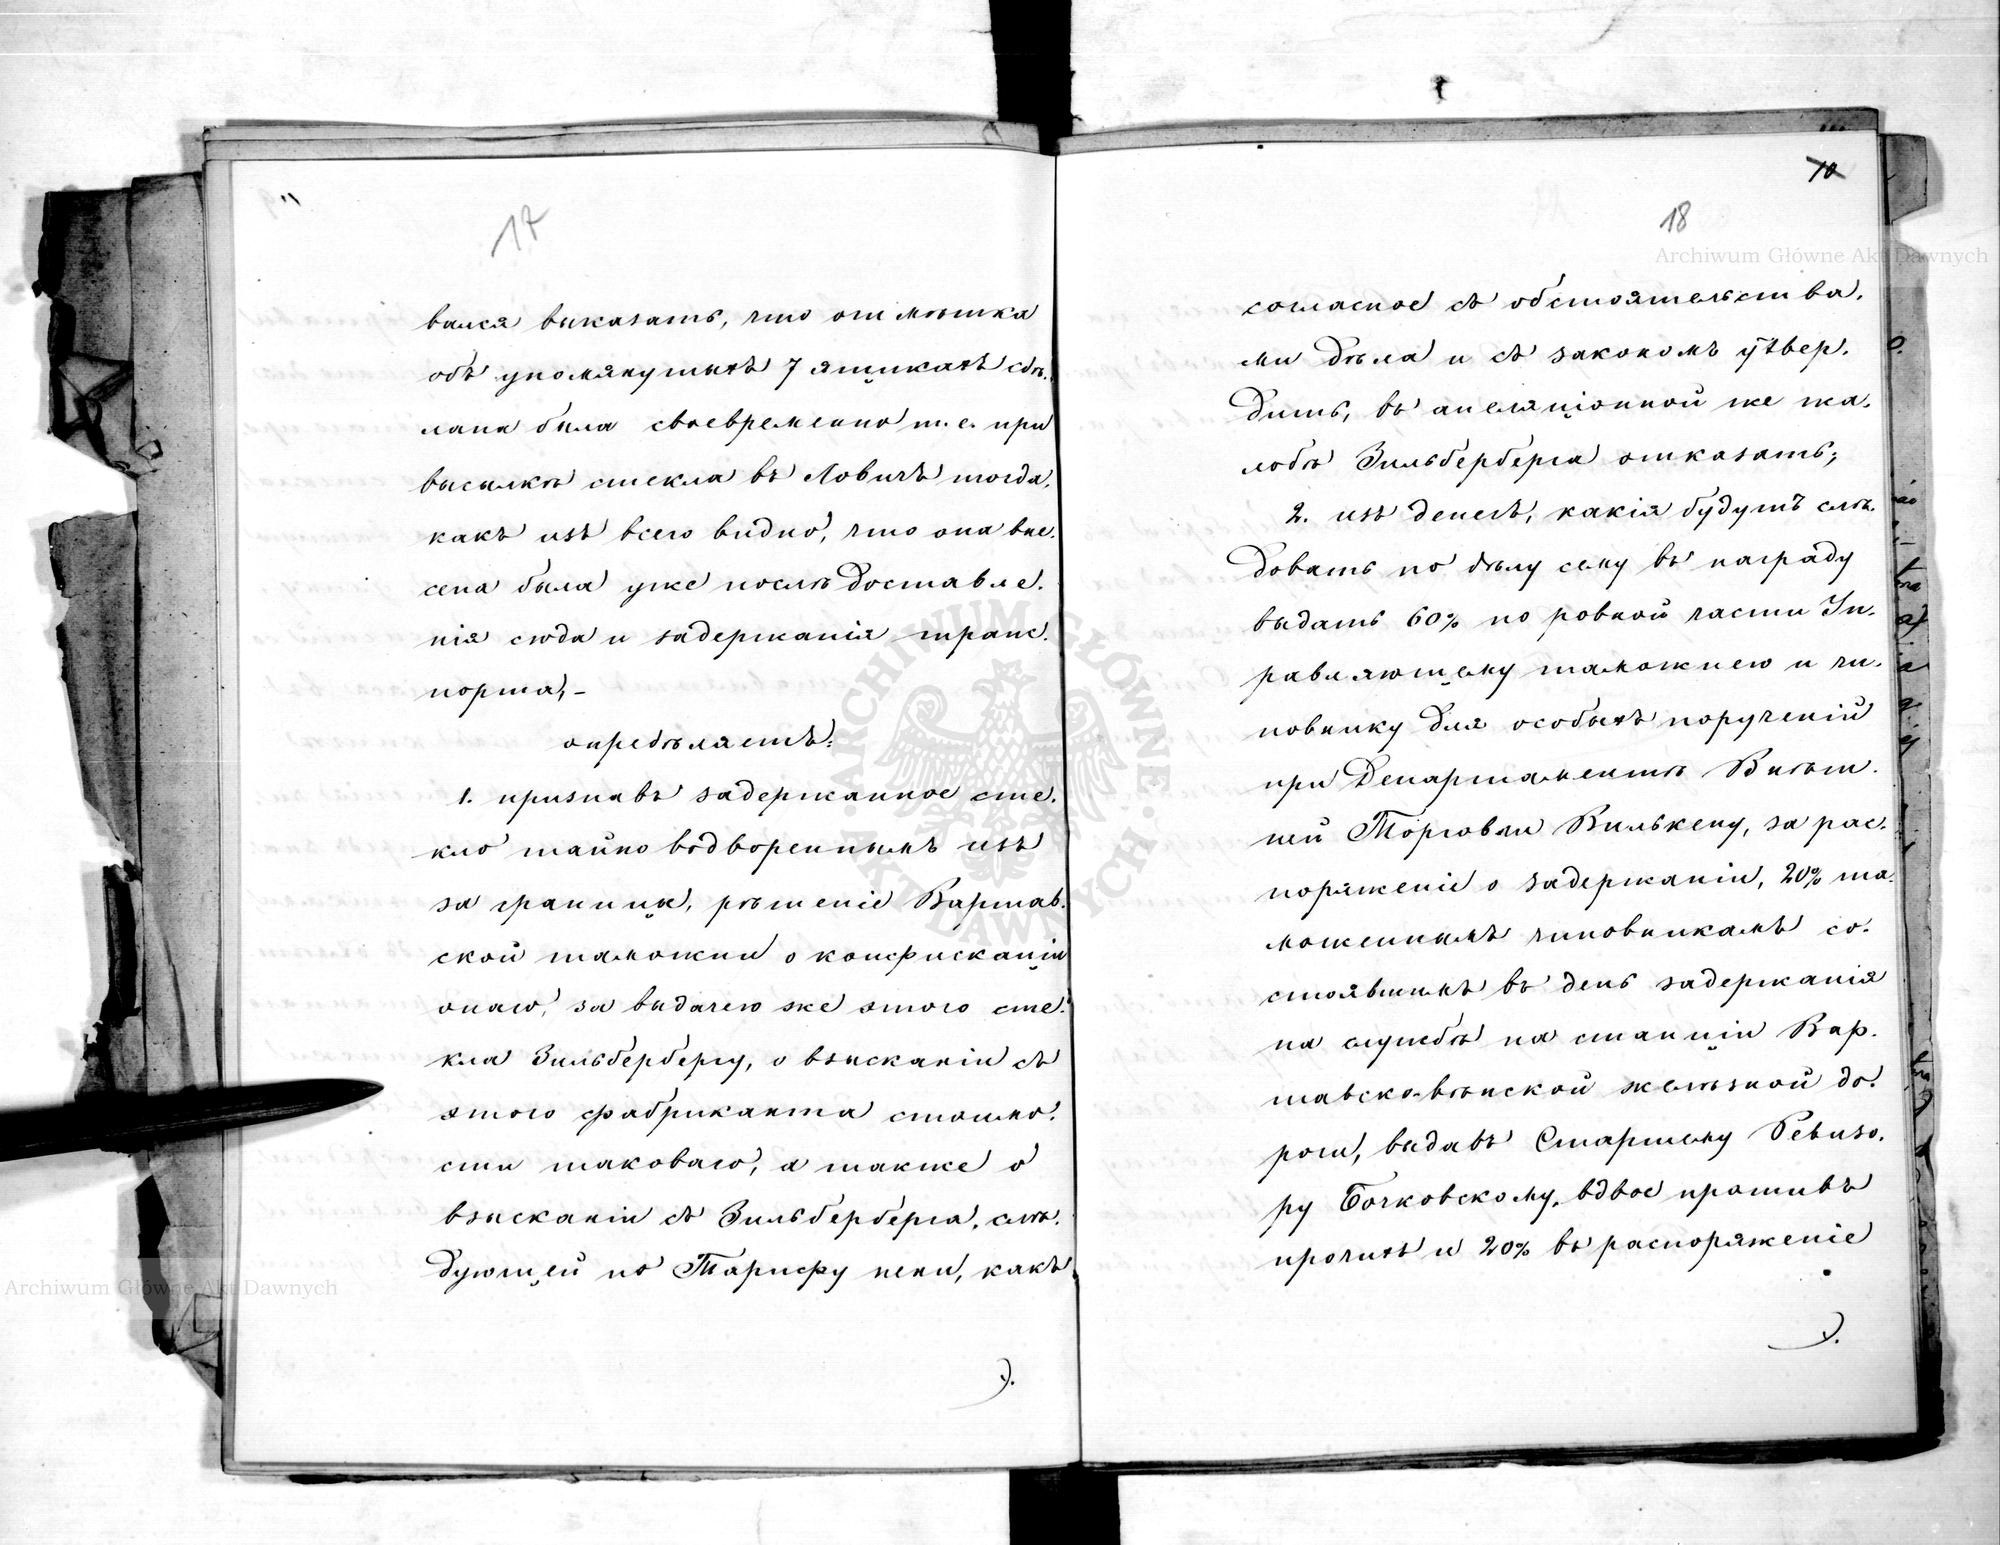 17
вался выказать, что отмѣтка
объ упомянутыхъ 7 ящикахъ сдѣ-
лана была своевременно т. е. при
высылкѣ стекла въ Ловичъ тогда,
какъ изъ всего видно, что она вне-
сена была уже послѣ доставле-
нія сюда и задержанія транс-
порта, –
опредѣляетъ:
1. признавъ задержанное сте-
кло тайно водвореннымъ изъ
за границы, рѣшеніе Варшав-
ской таможни о конфискаціи
онаго, за выдачею же этого сте-
кла Зильбербергу, о взысканіи съ
этого фабриканта стоимо-
сти таковаго, а также о
взысканіи съ Зильберберга, слѣ-
дующей по Тарифу пени, какъ
10
18
согласное съ обстоятельства-
ми дѣла и съ закономъ утвер-
дить, въ апеляціонной же жа-
лобѣ Зильберберга отказать;
2. изъ денегъ, какія будутъ слѣ-
довать по дѣлу сему въ награду
выдать 60% по ровной части Уп-
равляющему таможнею и чи-
новнику для особыхъ порученій
при Департаментѣ Внѣш-
ней Торговли Вилькену, за рас-
поряженіе о задержаніи, 20% та-
моженнымъ чиновникамъ со-
стоявшимъ въ день задержанія
на службѣ на станціи Вар-
шавско-вѣнской желѣзной до-
роги, выдавъ Старшему Ревизо-
ру Бочковскому, вдвое противъ
прочихъ и 20% въ распоряженіе
Archiwum Główne Akt Dawnych
Archiwum Główne Akt Dawnych
ARCHIWUM GŁÓWNE AKT DAWNYCH